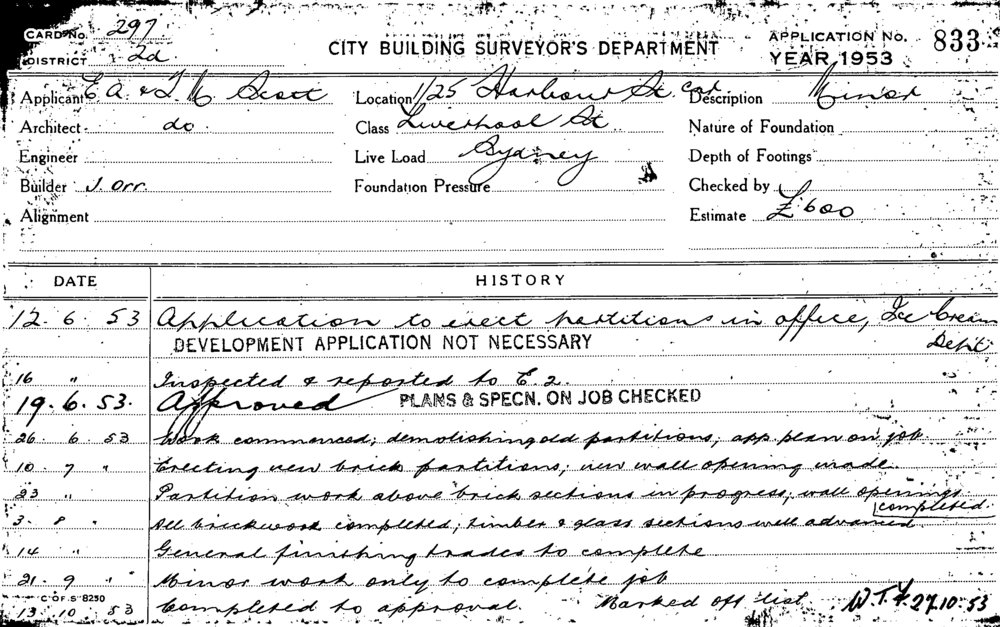 CARD No. 297
DISTRICT 2d.
CITY BUILDING SURVEYOR'S DEPARTMENT
APPLICATION No. 833
YEAR 1953
Applicant E A. & T. M Scott
Location 1/25 Harbour St. cor
Description Minor
Architect do.
Class Liverpool St
Nature of Foundation
Engineer
Live Load Sydney
Depth of Footings
Builder J. Orr.
Foundation Pressure
Checked by
Alignment
Estimate £600
DATE HISTORY
12. 6. 53 Application to erect partitions in office, Ice Cream
Dept
DEVELOPMENT APPLICATION NOT NECESSARY
16 " Inspected & reported to E.2.
19. 6. 53. Approved PLANS & SPECN. ON JOB CHECKED
26 6 53 Work commenced; demolishing old partitions; app plan on job
10. 7 " Erecting new brick partitions; new wall opening made.
23 " Partition work above brick sections in progress; wall openings
completed.
3. 8 " All brickwork completed; timber & glass sections well advanced.
14 " General finishing trades to complete
21. 9 " Minor work only to complete job
C. OF S 8250
13. 10. 53 Completed to approval. Marked off list W.T. 27.10.53